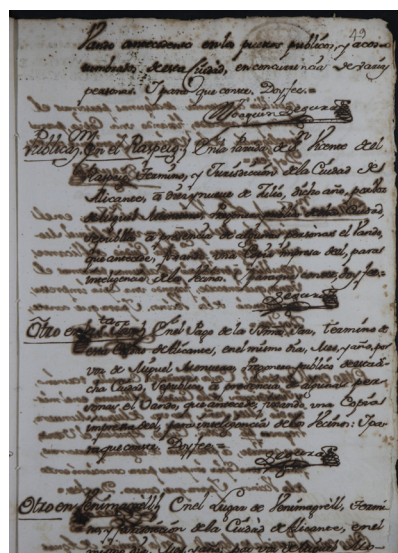 49
Vando antecedente en los puestos publicos, y acos-
tumbrados de esta Ciudad, en concurrencia de varias
personas. Y para que conste, Doy fee.=
Joaquin Segura
Public.n en el Raspeig En la Partida de S.n Vicente de el
Raspeig, termino, y Jurisdiccion de la Ciudad de
Alicante, a diez y nueve de Julio, dicho año, por voz
de Miguel publico de esta Ciudad,
se publicó a presencia de algunas personas el Vando,
que antecede, fixando una Copia impresa de el, para
inteligencia de los Vecinos. Y para que conste, doy fee=
Segura
Otro en la En el de la termino de
esta Ciudad de Alicante, en el mismo dia, Mes, y año, por
voz de Miguel publico de esta di-
cha Ciudad, se publicó a presencia de algunas per-
sonas el Vando, que antecede, fixando una Copia
impresa de el, para inteligencia de los Vecinos: Y pa-
ra que conste, Doy fee.=
Segura
Otro en Benimagrell En el Lugar de Benimagrell, termi-
no, y Jurisdiccion de la Ciudad de Alicante, en el